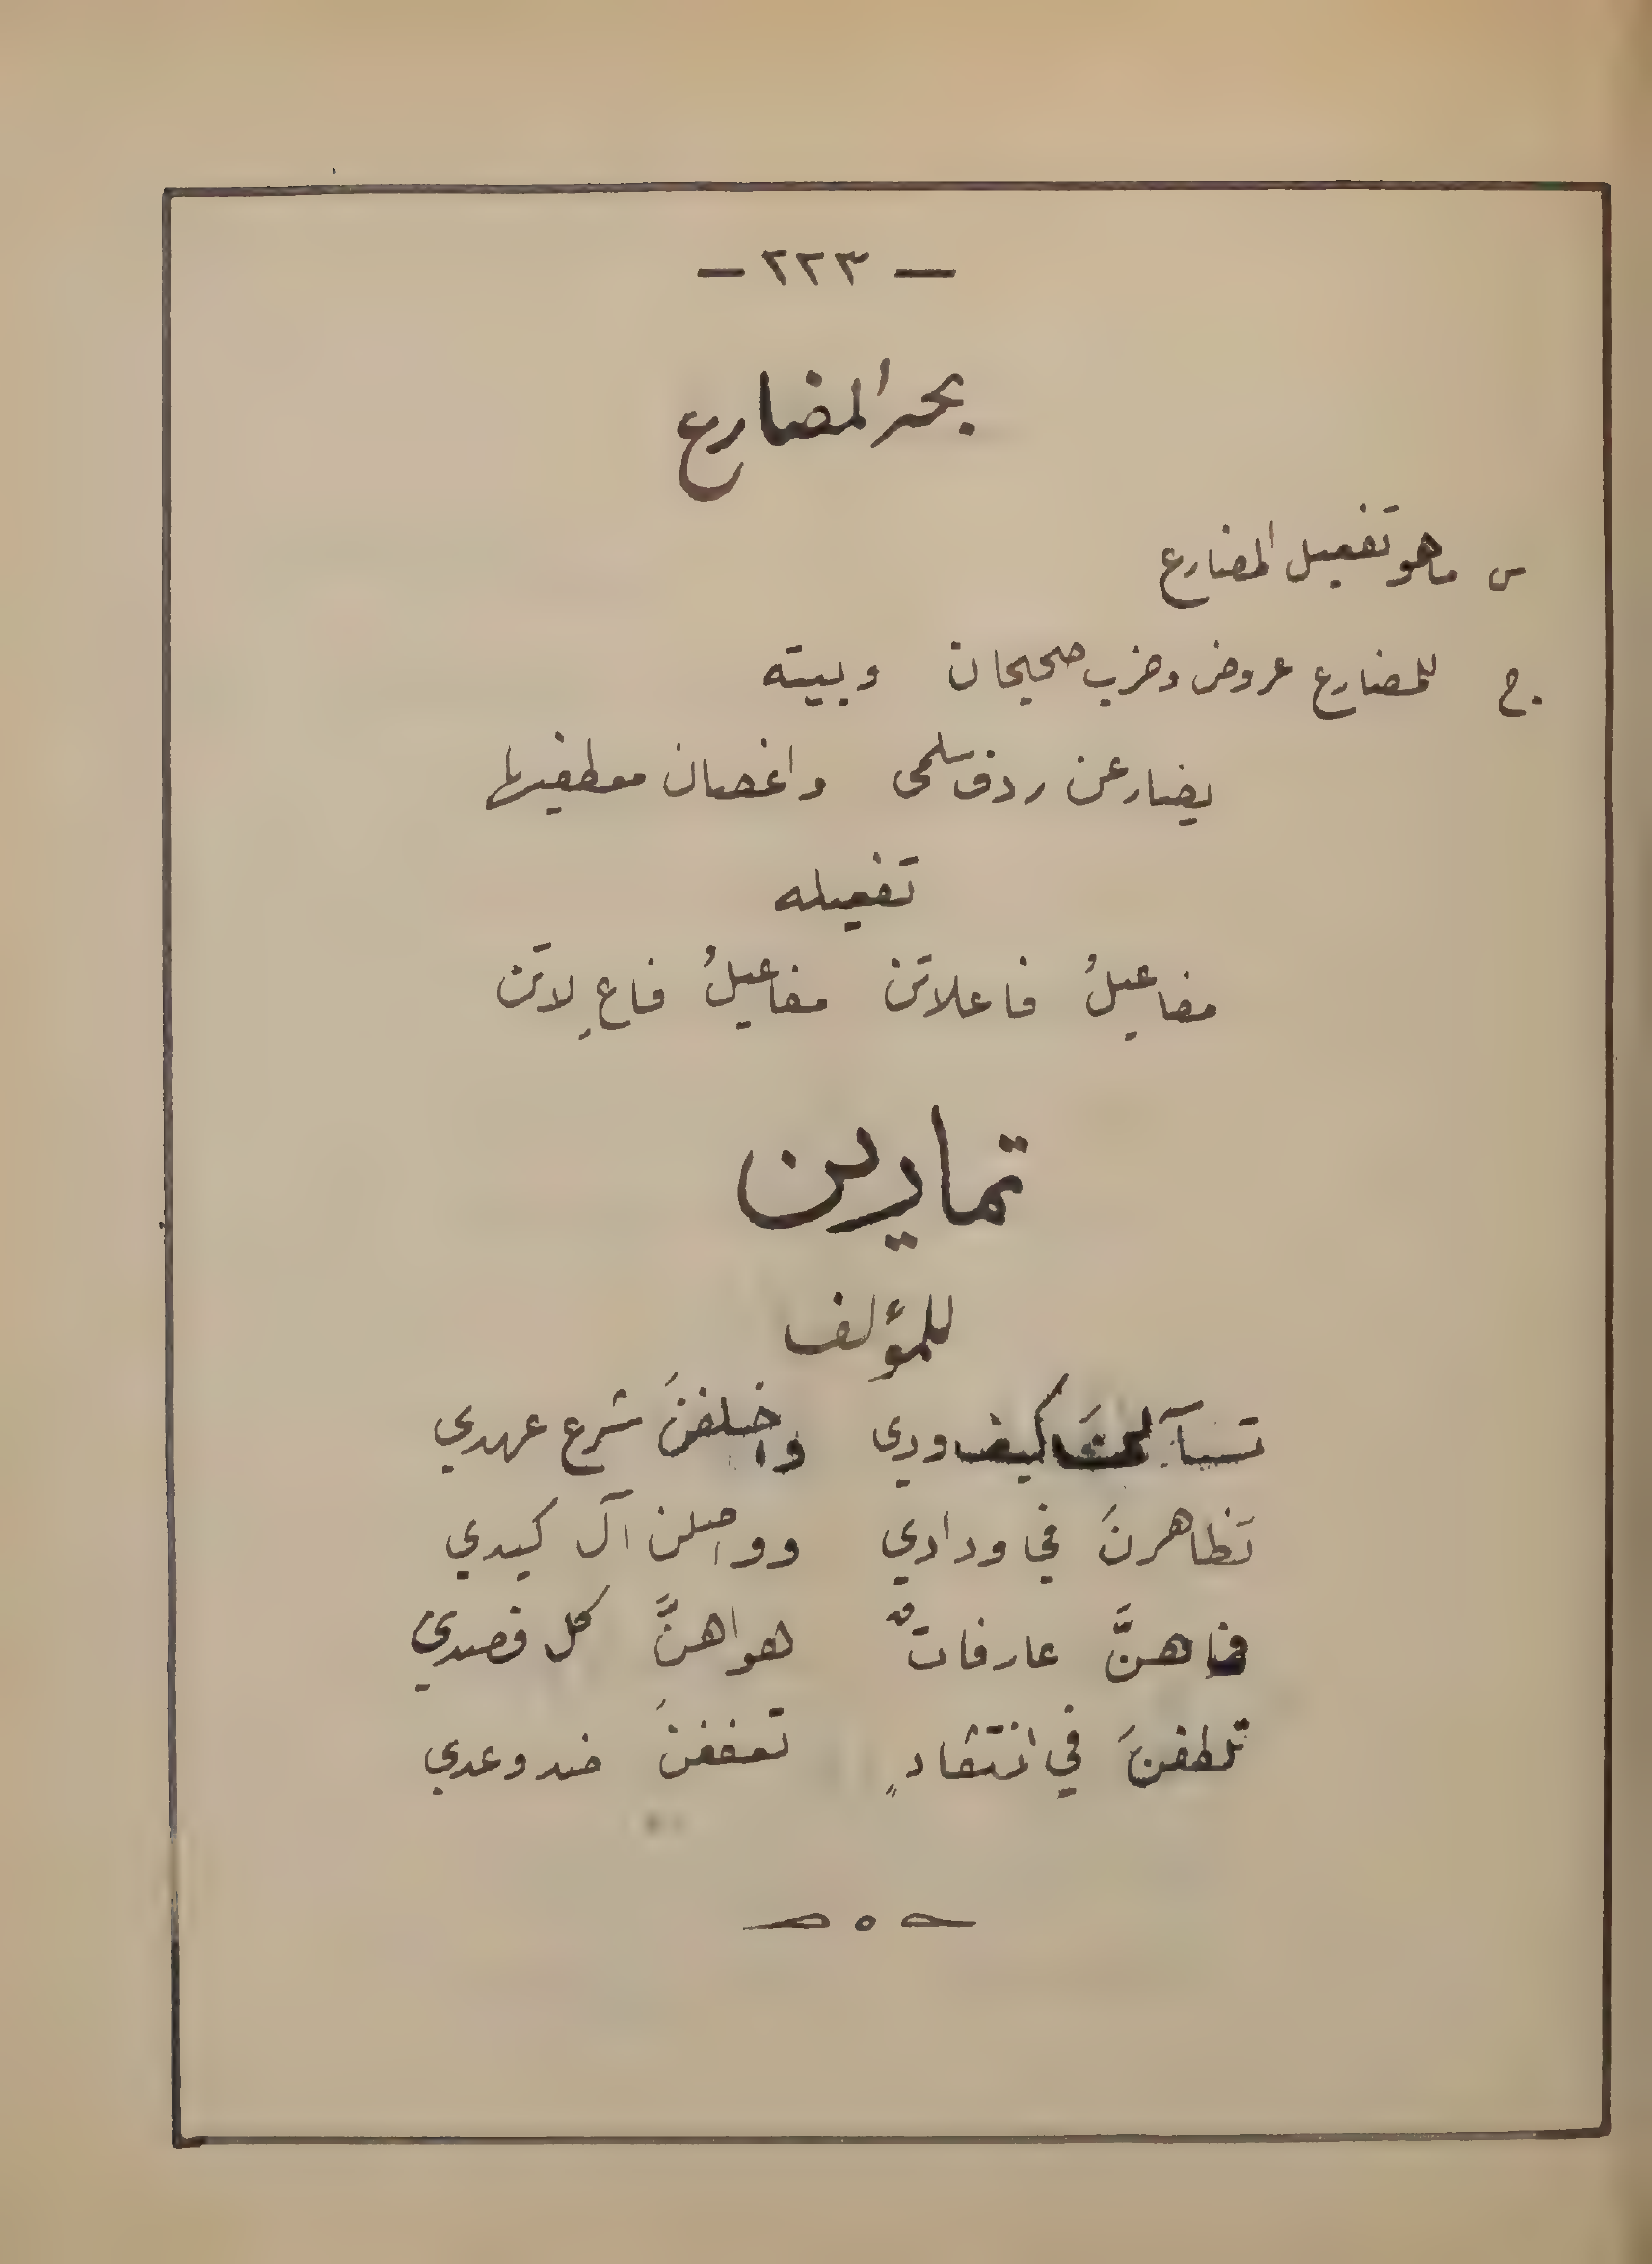 — ٢٢٣ —
بحر المضارع
س ماهو تفعيل المضارع
ج. للمضارع عروض وضرب صحيحان وبيته
يضارعن ردف سلمى واغصان معطفيها
تفعيله
مفاعيلُ فاعلاتن مفاعيلُ فاعِ لاتن
تمارين
للمؤلف
كيف ودي واخلفنَ شرع عهدي
تظاهرنَ في ودادي وواصلن آل كيدي
فاهنَّ عارفاتٌ هواهنَّ كل قصدي
تلطفنَ في انتقادٍ تعففنَ ضد وعدي